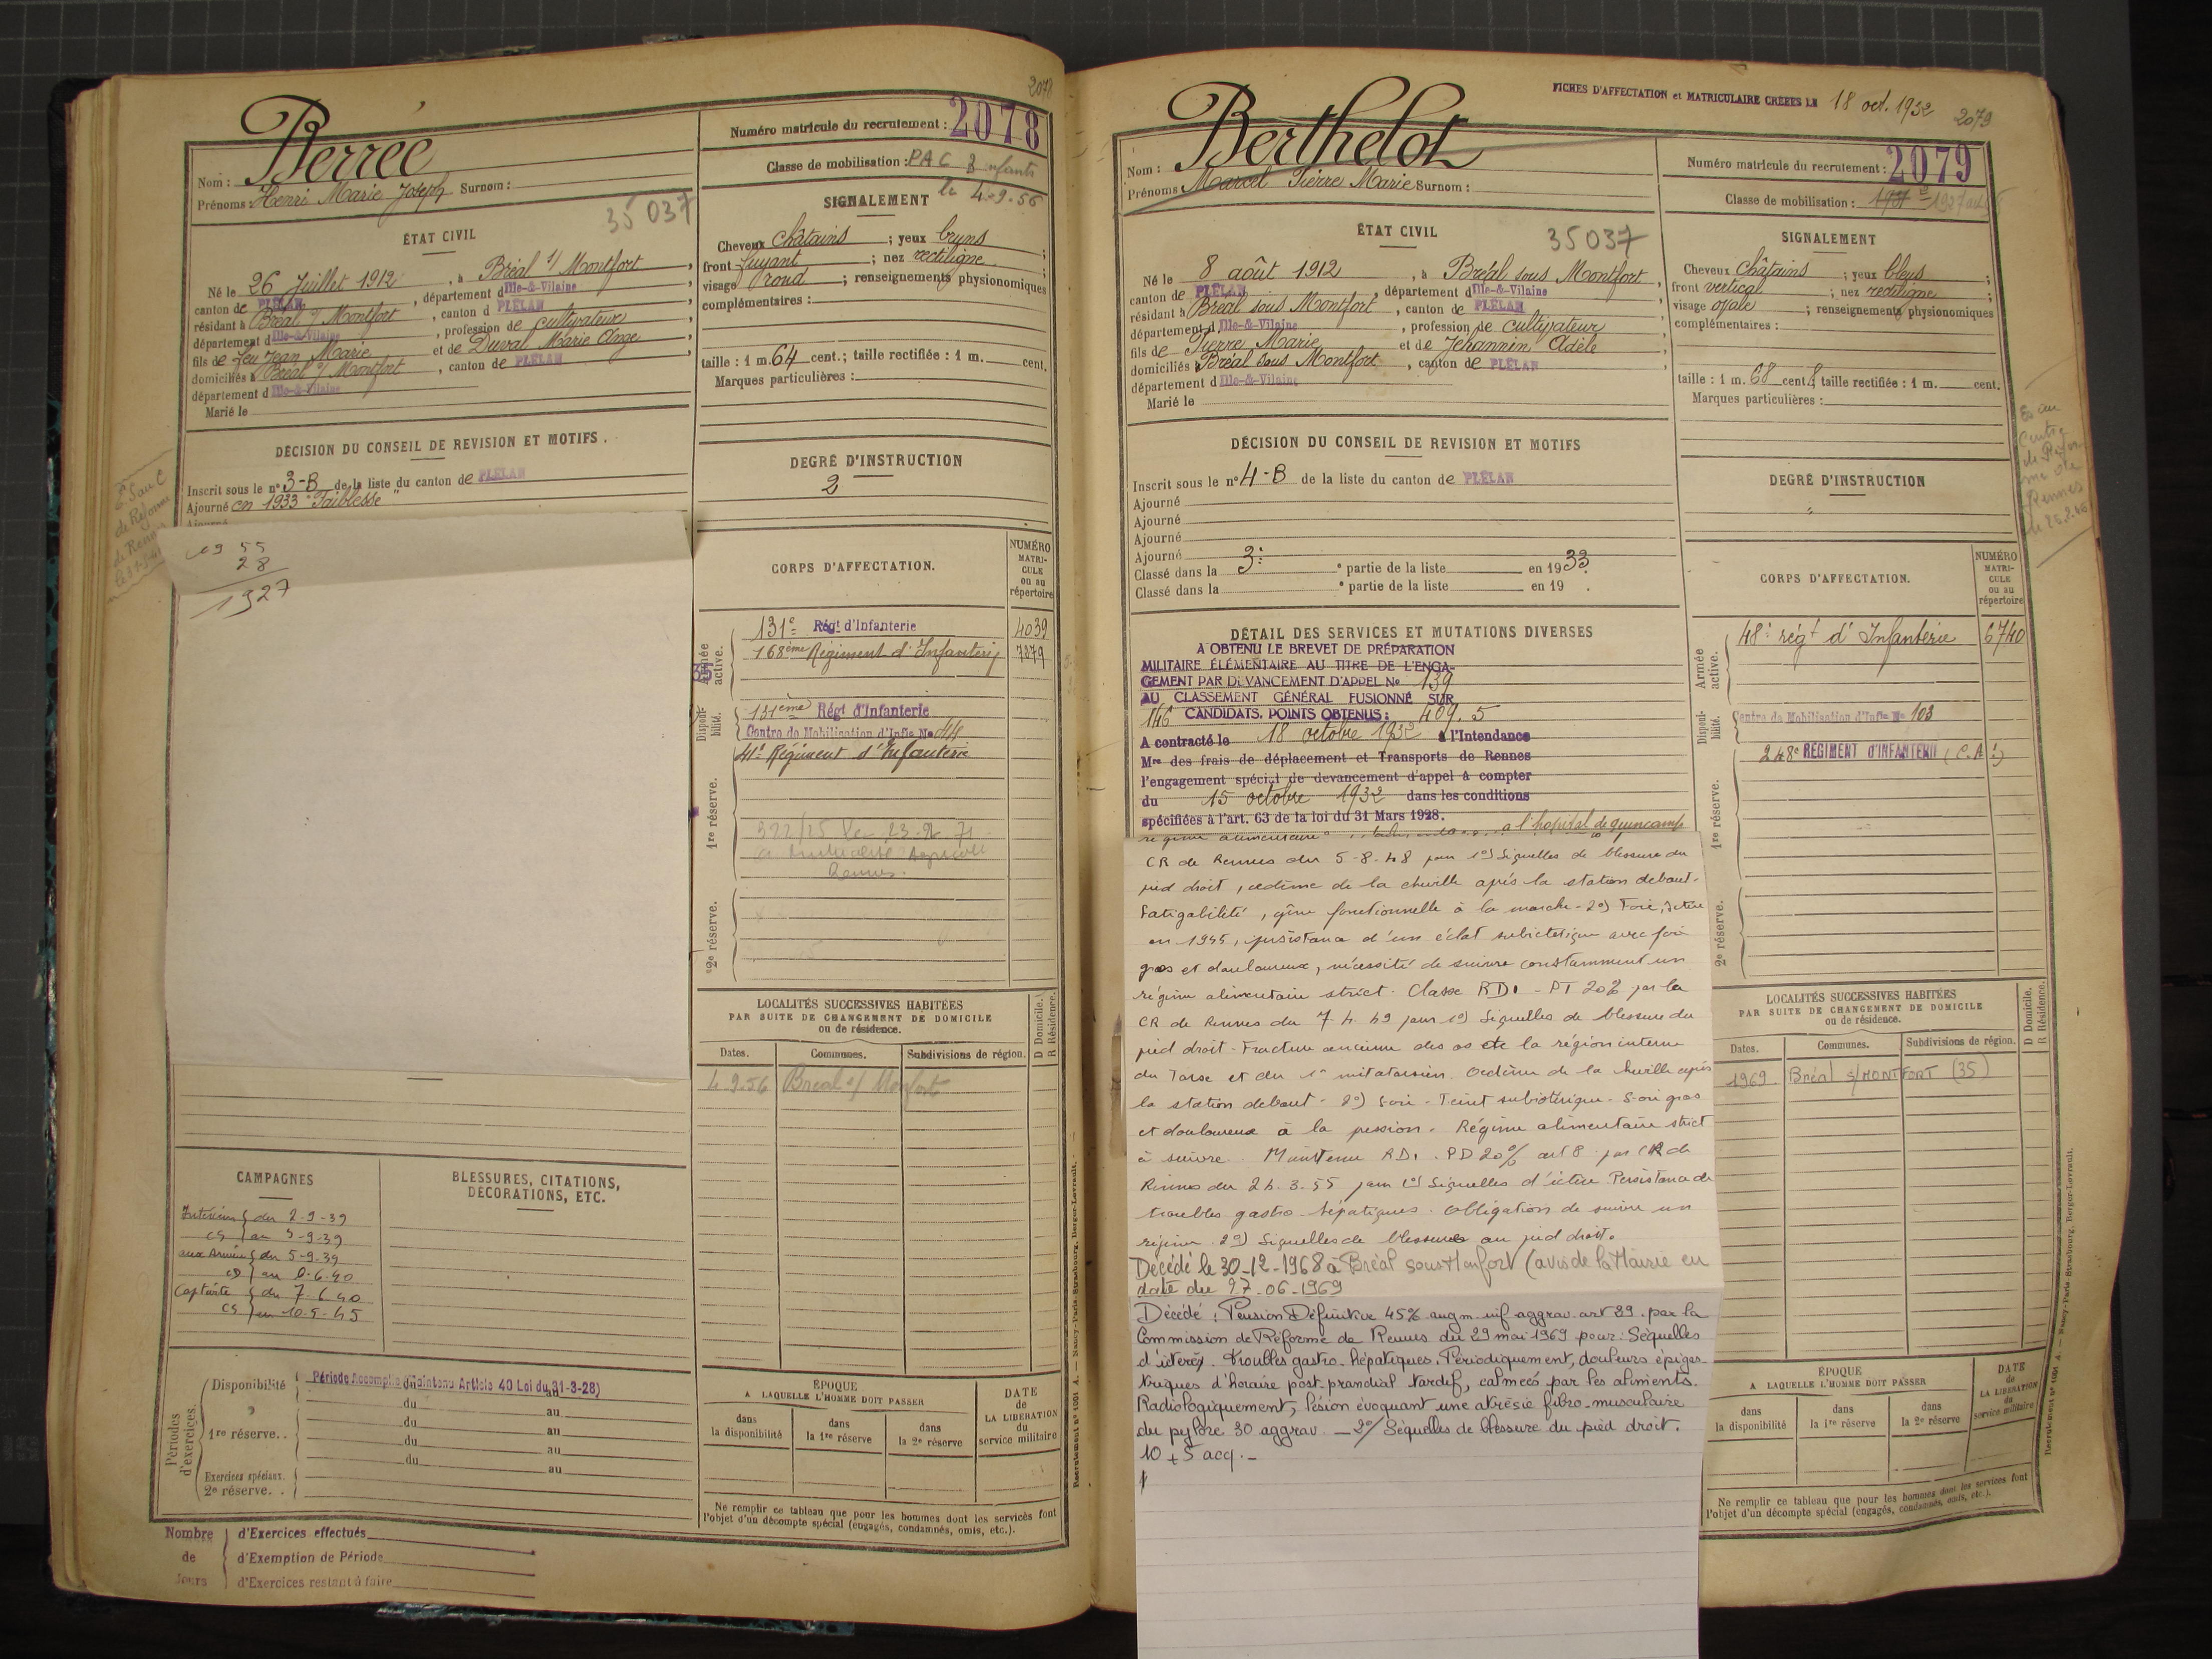 2078
Berrée
Numéro matricule du recrutement : 2078
Nom :
Prénoms : Henri Marie Joseph Surnom :
Classe de mobilisation : PAC 3 enfants
le 4-9-56
35 037
ÉTAT CIVIL
Né le 26 Juillet 1912, à Bréal s/ Montfort,
canton de PLÉLAN, département d'Ille-&-Vilaine,
résidant à Bréal s/ Montfort, canton d PLÉLAN
département d Ille-&-Vilaine, profession de cultivateur,
fils de feu Jean Marie et de Duval Marie Ange
domiciliés à Bréal s/ Montfort, canton de PLÉLAN
département d Ille-&-Vilaine
Marié le
SIGNALEMENT
Cheveux châtains ; yeux bruns ;
front fuyant ; nez rectiligne ;
visage rond ; renseignements physionomiques
complémentaires :
taille : 1 m. 64 cent.; taille rectifiée : 1 m. cent.
Marques particulières :
DÉCISION DU CONSEIL DE REVISION ET MOTIFS.
Inscrit sous le n° 3-B de la liste du canton de PLÉLAN
Ajourné en 1933 "Faiblesse"
Ajourné
DEGRÉ D'INSTRUCTION
2
19 55
28
1927
CORPS D'AFFECTATION.
NUMÉRO MATRICULE ou au répertoire
Armée active.
131e Régt d'Infanterie 4039
168ème Régiment d'Infanterie 7379
Disponibilité.
131ème Régt d'Infanterie
Centre de Mobilisation d'Infie No 44
41e Régiment d'Infanterie
1re réserve.
Rennes.
2e réserve.
LOCALITÉS SUCCESSIVES HABITÉES
PAR SUITE DE CHANGEMENT DE DOMICILE
ou de résidence.
D Domicile.
R Résidence.
Dates. Communes. Subdivisions de région.
4.9.56 Bréal s/ Monfort
CAMPAGNES
Intérieur du 2-9-39
CS au 4-9-39
aux Armées du 5-9-39
CD au 6.6.40
Captivité du 7-6 40
CS au 10-5-45
BLESSURES, CITATIONS,
DÉCORATIONS, ETC.
Périodes d'exercices.
Disponibilité Période Accomplie (Maintenu Article 40 Loi du 31-3-28)
du au
1re réserve. . du au
du au
du au
Exercices spéciaux. du au
2e réserve. .
ÉPOQUE
A LAQUELLE L'HOMME DOIT PASSER
dans la disponibilité
dans la 1re réserve
dans la 2e réserve
DATE de LA LIBÉRATION du service militaire
Ne remplir ce tableau que pour les hommes dont les services font
l'objet d'un décompte spécial (engagés, condamnés, omis, etc.).
Nombre de Jours
d'Exercices effectués
d'Exemption de Période
d'Exercices restant à faire
Recrutement N° 1001 A. — Nancy-Paris-Strasbourg, Berger-Levrault.
FICHES D'AFFECTATION et MATRICULAIRE CRÉÉES LE 18 oct. 1932
2079
Berthelot
Numéro matricule du recrutement : 2079
Nom :
Prénoms Marcel Pierre Marie Surnom :
Classe de mobilisation : 1931
35037
ÉTAT CIVIL
Né le 8 août 1912, à Bréal sous Montfort,
canton de PLÉLAN, département d'Ille-&-Vilaine
résidant à Bréal sous Montfort, canton de PLÉLAN
département d Ille-&-Vilaine, profession de cultivateur
fils de Pierre Marie et de Jehannin Adèle
domiciliés à Bréal sous Montfort, canton de PLÉLAN
département d Ille-&-Vilaine
Marié le
SIGNALEMENT
Cheveux châtains ; yeux bleus ;
front vertical ; nez rectiligne ;
visage ovale ; renseignements physionomiques
complémentaires :
taille : 1 m. 68 cent.; taille rectifiée : 1 m. cent.
Marques particulières :
DÉCISION DU CONSEIL DE REVISION ET MOTIFS
Inscrit sous le n° 4-B de la liste du canton de PLÉLAN
Ajourné
Ajourné
Ajourné
Ajourné
Classé dans la 3e partie de la liste en 1933.
Classé dans la e partie de la liste en 19 .
DEGRÉ D'INSTRUCTION
Centre
de Rennes
DÉTAIL DES SERVICES ET MUTATIONS DIVERSES
A OBTENU LE BREVET DE PRÉPARATION
MILITAIRE ÉLÉMENTAIRE AU TITRE DE L'ENGA-
GEMENT PAR DEVANCEMENT D'APPEL No 139
AU CLASSEMENT GÉNÉRAL FUSIONNÉ SUR
146 CANDIDATS. POINTS OBTENUS : 409.5
A contracté le 18 octobre 1932 à l'Intendance
Mre des frais de déplacement et Transports de Rennes
l'engagement spécial de devancement d'appel à compter
du 15 octobre 1932 dans les conditions
spécifiées à l'art. 63 de la loi du 31 Mars 1928.
à l'hopital de guincamp
CR de Rennes du 5-8-48 pour 1°) Séquelles de blessure du
pied droit, oedème de la cheville après la station debout.
Fatigabilité, gêne fonctionnelle à la marche - 2°) Foie, ictère
en 1945, persistance d'un éclat subictérique avec foie
gros et douloureux, nécessité de suivre constamment un
régime alimentaire strict. Classe RD1 - PT 20% par la
CR de Rennes du 7 4 49 pour 1°) Séquelles de blessure du
pied droit - Fracture ancienne des os de la région interne
du Tarse et du 1er métatarsien. Oedème de la cheville après
la station debout - 2°) Foie - Teint subictérique - Foie gros
et douloureux à la pression. Régime alimentaire strict
à suivre. Maintenu RD1. PD 20% art 8 par CR de
Rennes du 24.3.55 pour 1°) Séquelles d'ictère Persistance de
troubles gastro-hépatiques. Obligation de suivre un
régime. 2°) Séquelles de blessures au pied droit.
Décédé le 30-12-1968 à Bréal sous Monfort (avis de la Mairie en
date du 27.06.1969
Décédé : Pension Définitive 45% augm. inf. aggrav. art 29. par la
Commission de Réforme de Rennes du 29 mai 1969 pour : Séquelles
d'ictère. Troubles gastro-hépatiques. Périodiquement, douleurs épigas-
triques d'horaire post-prandial tardif, calmées par les aliments.
Radiologiquement, lésion évoquant une atrésie fibro-musculaire
du pylore 30 aggrav. — 2°/ Séquelles de blessure du pied droit.
10 + 5 acq. -
CORPS D'AFFECTATION.
NUMÉRO MATRICULE ou au répertoire
Armée active.
48e régt d'Infanterie 6740
Disponibilité.
Centre de Mobilisation d'Infie No 103
1re réserve.
248e RÉGIMENT D'INFANTERIE (C.A 1)
2e réserve.
LOCALITÉS SUCCESSIVES HABITÉES
PAR SUITE DE CHANGEMENT DE DOMICILE
ou de résidence.
D Domicile.
R Résidence.
Dates. Communes. Subdivisions de région.
1969. Bréal s/MONTFORT (35)
ÉPOQUE
A LAQUELLE L'HOMME DOIT PASSER
dans la disponibilité
dans la 1re réserve
dans la 2e réserve
DATE de LA LIBÉRATION du service militaire
Ne remplir ce tableau que pour les hommes dont les services font
l'objet d'un décompte spécial (engagés, condamnés, omis, etc.).
Recrutement N° 1001 A. — Nancy-Paris-Strasbourg, Berger-Levrault.